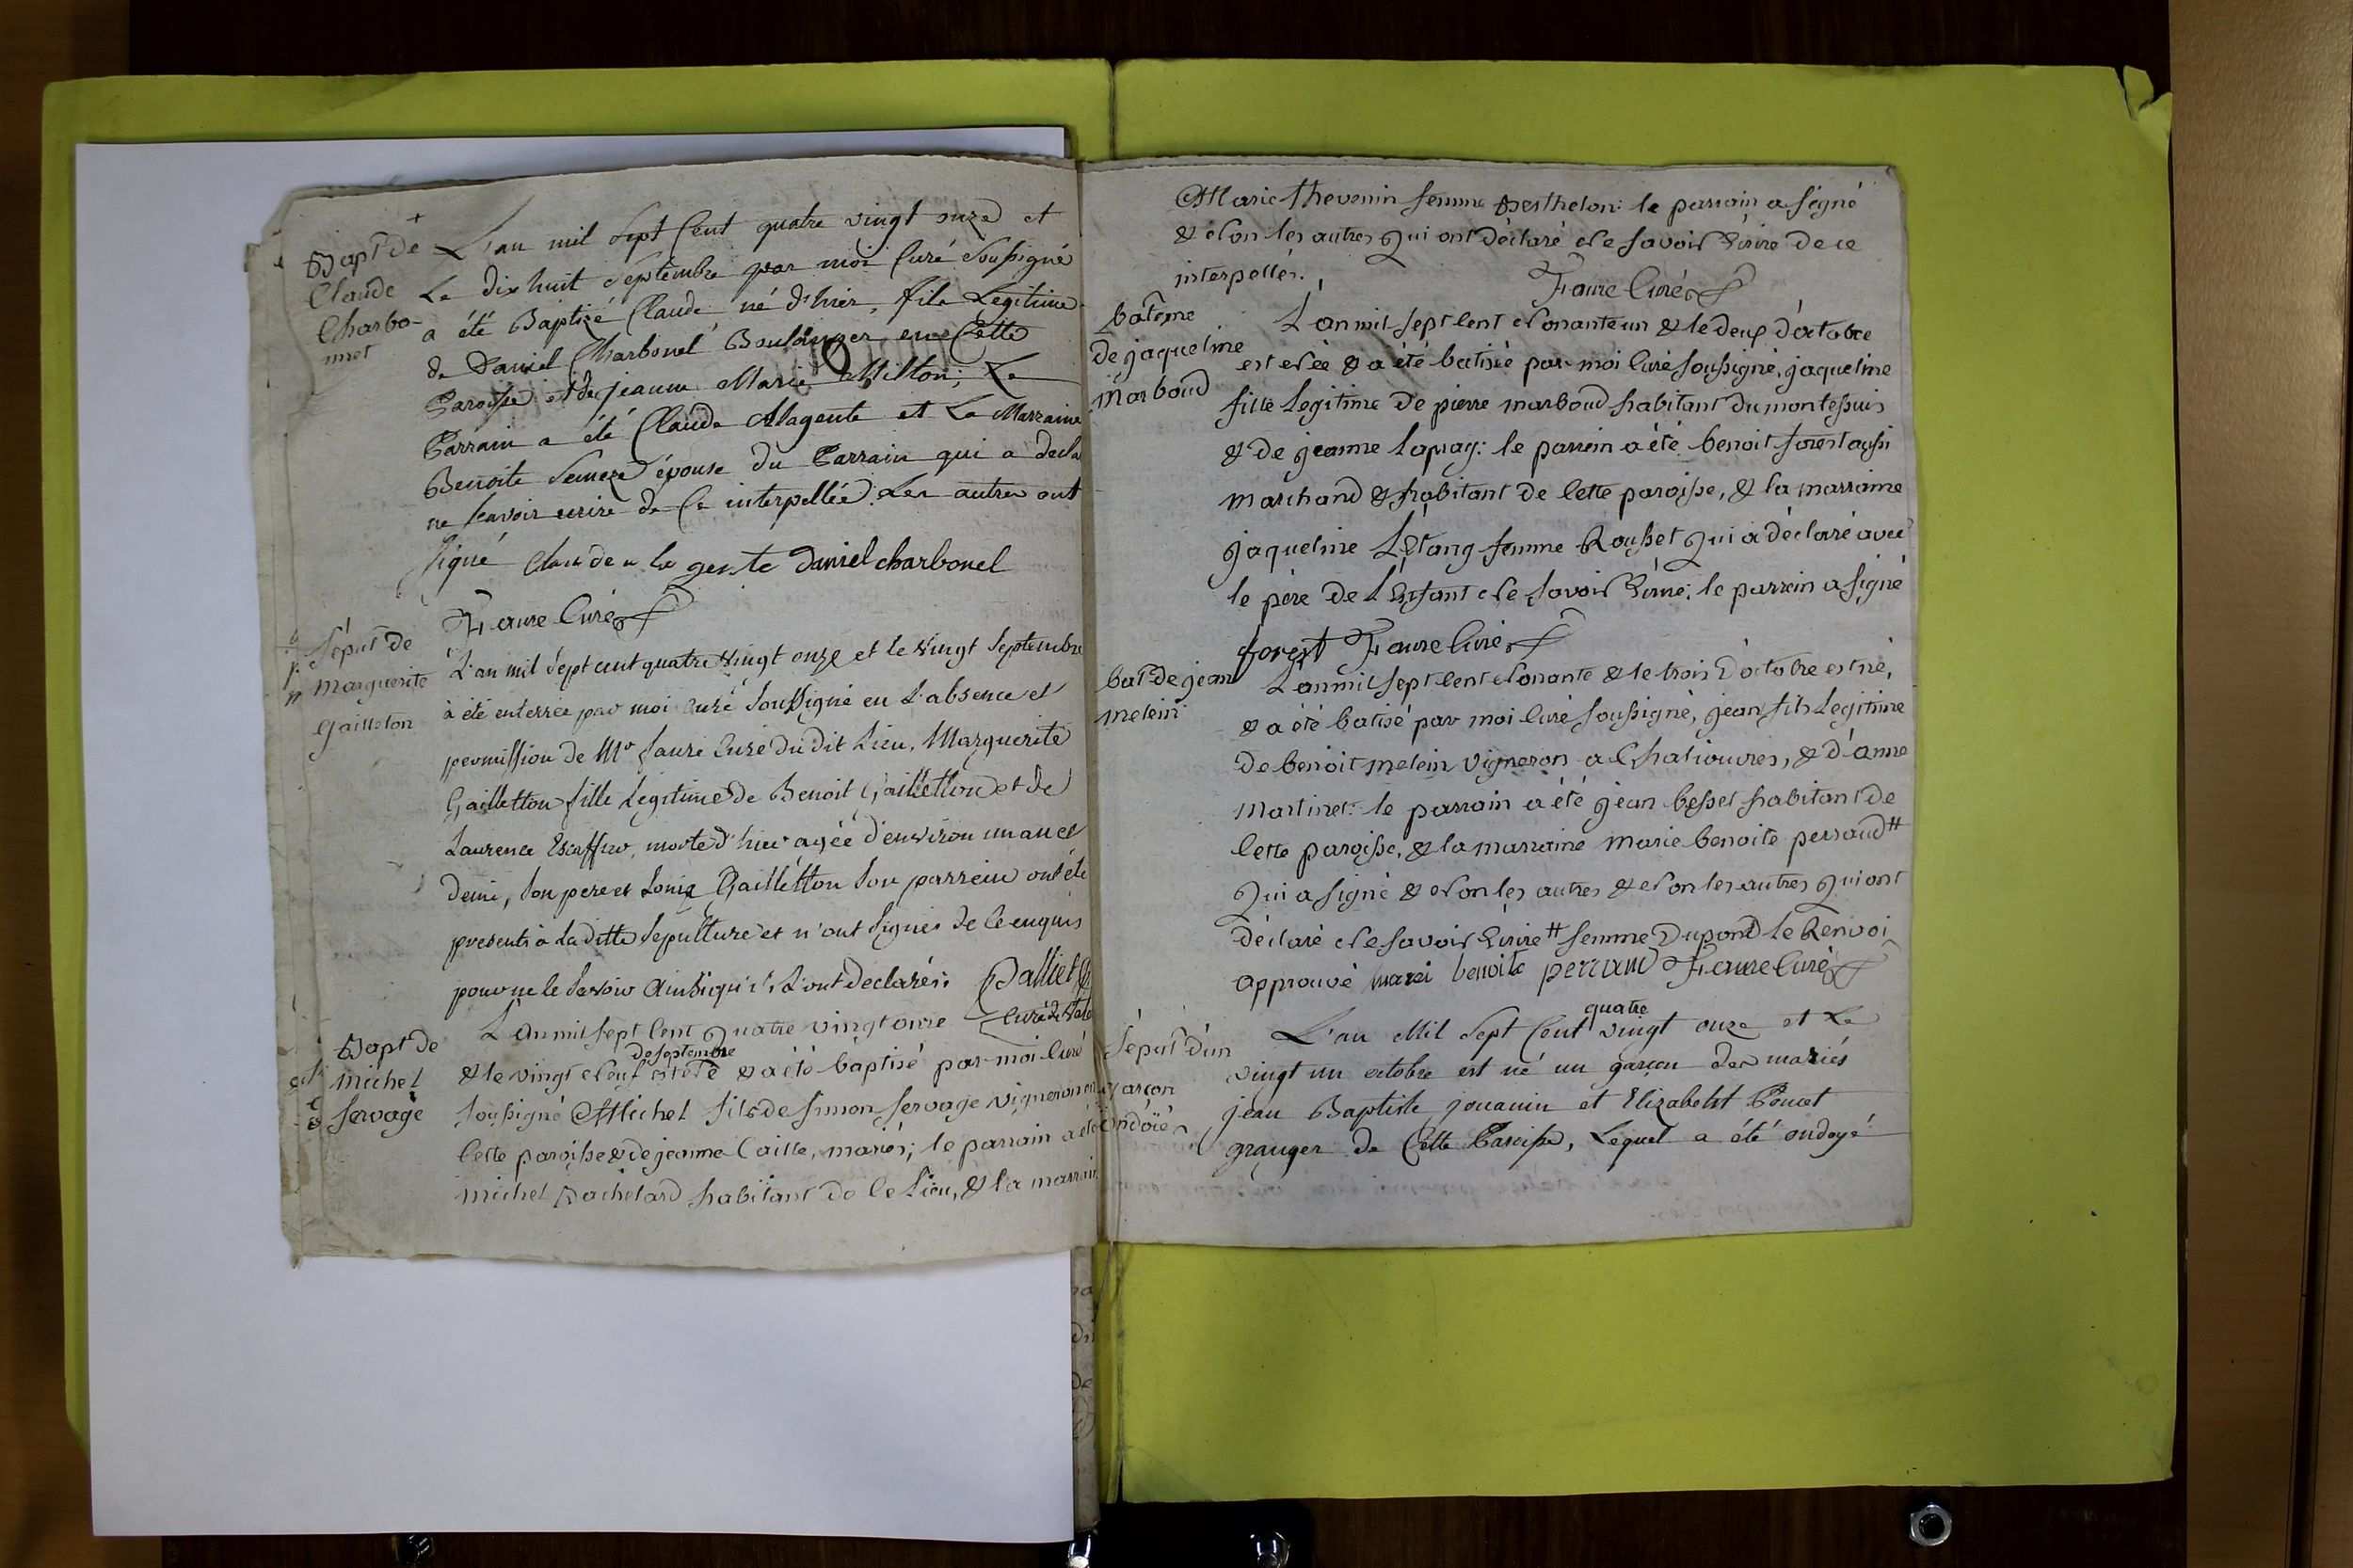 Bapt de
Claude
Charbo-
nnet
L'an mil sept Cent quatre vingt onze et
Le dix huit Septembre par moi Curé Soussigné
a été Baptisé Claude né d'hier, fils Legitime
de Daniel Charbonel Boulanger en Cette
Paroisse et de jeanne Marie Milton; Le
Parrain a été Claude Alagente et La Marraine
Benoite épouse du Parrain qui a decla
ne scavoir ecrire de Ce interpellée. Les autres ont
signé Claude a la gente Daniel charbonel
Faure Curé
Sépult de
Marguerite
Gailleton
L'an mil sept cent quatre vingt onze et le vingt Septembre
à été enterrée par moi curé soussigné en L'absence et
permission de Mr faure Curé du dit Lieu, Marguerite
Gailletton fille Legitime de Benoit Gailletton et de
Laurence morte d'hier agée d'environ un an et
demi, son pere et Louis Gailletton son parrein ont été
presents à La ditte sepulture et n'ont signés de ce enquis
pour ne le savoir ainsi qu'ils L'ont declarés: Dalliet
Curé de
Bapt de
michel
servage
L'an mil sept Cent Quatre vingt onze
de septembre
& le vingt neuf est né & a été baptisé par moi Curé
soussigné Michel fils de simon servage vigneron en
Cette paroisse & de jeanne Caille, mariés; le parrain a été
michel Bachelard habitant de Ce Lieu, & la marrain
Marie thevenin femme Berthelon: le parrain a signé
& Non les autres Qui ont Déclaré Ne savoir Ecrire de ce
interpellés.
Faure Curé
batême
De jaqueline
marboud
L'an mil sept Cent Nonante un & le deux d'octobre
est née & a été batisée par moi Curé soussigné, jaqueline
fille Legitime de pierre marboud habitant du montessuis
& de jeanne Lapray: le parrein a été benoit forest aussi
marchand & habitant de Cette paroisse, & la marraine
jaqueline L'Etang femme Rousset Qui a déclaré avec
le père de L'Enfant Ne savoir Ecrire; le parrein a signé
forest Faure Curé
bat de jean
melein
L'an mil sept Cent Nonante & le trois D'octobre est né,
& a été batisé par moi Curé soussigné, jean fils Legitime
de benoit melein vigneron a Chaliouvres, & d'anne
Martinet: le parrain a été jean besset habitant de
Cette paroisse, & la marraine marie benoite perraud #
Qui a signé & Non les autres & Non les autres Qui ont
déclaré Ne savoir Ecrire # femme Dupond le Renvoi
approuvé marei benoite perraud Faure Curé
Sépult d'un
garçon
ondoïé
quatre
L'an Mil Sept Cent vingt onze et Le
vingt un octobre est né un garçon des mariés
jean Baptiste jouanin et Elizabeht Poncet
granger de Cette Paroisse, Lequel a été ondoyé